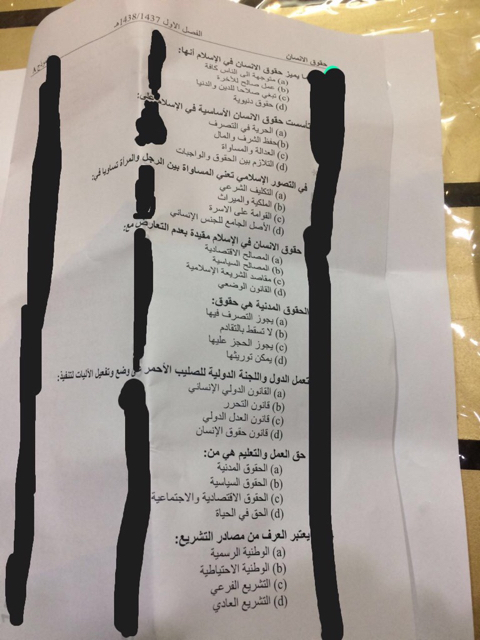 حقوق الانسان
الفصل الاول 1438/1437هـ
ما يميز حقوق الانسان في الإسلام أنها:
a) متوجهة الى الناس كافة
b) عمل صالح للآخرة
c) تبغي صلاحا للدين والدنيا
d) حقوق دنيوية
تأسست حقوق الانسان الأساسية في الإسلام على:
a) الحرية في التصرف
b) حفظ الشرف والمال
c) العدالة والمساواة
d) التلازم بين الحقوق والواجبات
في التصور الإسلامي تعني المساواة بين الرجل والمرأة تساويا في:
a) التكليف الشرعي
b) الملكية والميراث
c) القوامة على الاسرة
d) الأصل الجامع للجنس الإنساني
حقوق الانسان في الإسلام مقيدة بعدم التعارض مع:
a) المصالح الاقتصادية
b) المصالح السياسية
c) مقاصد الشريعة الإسلامية
d) القانون الوضعي
الحقوق المدنية هي حقوق:
a) يجوز التصرف فيها
b) لا تسقط بالتقادم
c) يجوز الحجز عليها
d) يمكن توريثها
تعمل الدول واللجنة الدولية للصليب الأحمر وضع وتفعيل الآليات لتنفيذ:
a) القانون الدولي الإنساني
b) قانون التحرر
c) قانون العدل الدولي
d) قانون حقوق الإنسان
حق العمل والتعليم هي من:
a) الحقوق المدنية
b) الحقوق السياسية
c) الحقوق الاقتصادية والاجتماعية
d) الحق في الحياة
يعتبر العرف من مصادر التشريع:
a) الوطنية الرسمية
b) الوطنية الاحتياطية
c) التشريع الفرعي
d) التشريع العادي